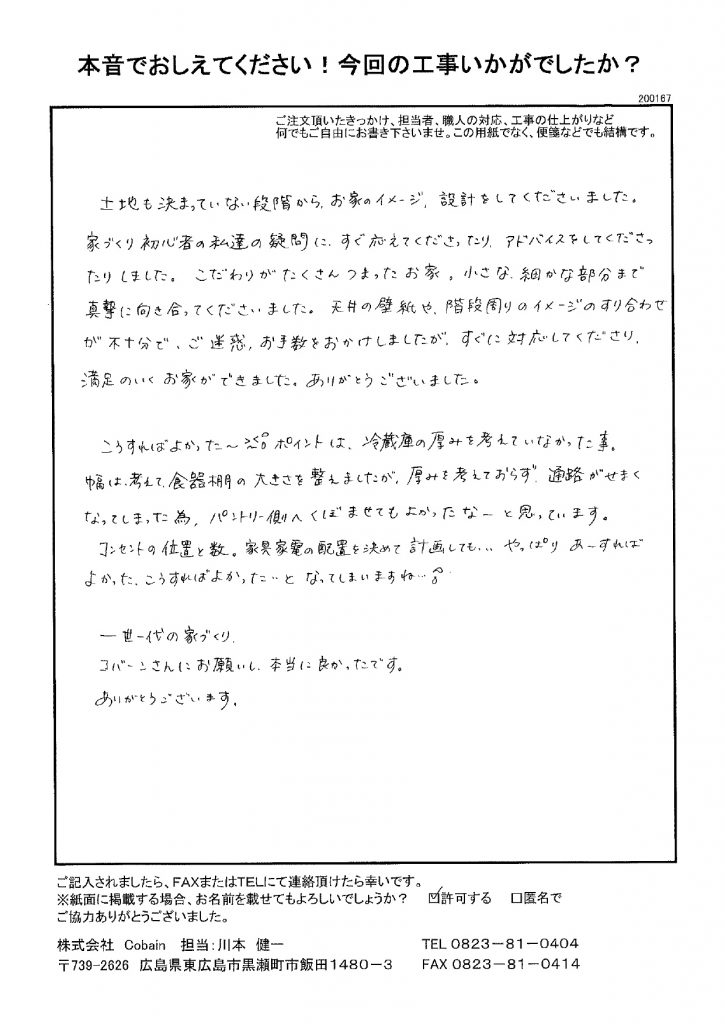 本音でおしえてください！今回の工事いかがでしたか？
200167
ご注文頂いたきっかけ、担当者、職人の対応、工事の仕上がりなど
何でもご自由にお書き下さいませ。この用紙でなく、便箋などでも結構です。
土地も決まっていない段階から、お家のイメージ、設計をしてくださいました。
家づくり初心者の私達の疑問に、すぐ応えてくださったり、アドバイスをしてくださっ
たりしました。こだわりがたくさんつまったお家。小さな、細かな部分まで
真摯に向き合ってくださいました。天井の壁紙や、階段周りのイメージのすり合わせ
が不十分で、ご迷惑、お手数をおかけしましたが、すぐに対応してくださり、
満足のいくお家ができました。ありがとうございました。
こうすればよかった〜ポイントは、冷蔵庫の厚みを考えていなかった事。
幅は、考えて、食器棚の大きさを整えましたが、厚みを考えておらず、通路がせまく
なってしまった為、パントリー側へくぼませてもよかったなーと思っています。
コンセントの位置と数。家具家電の配置を決めて計画しても…やっぱりあーすれば
よかった、こうすればよかった…となってしまいますね…
一世一代の家づくり、
コバーンさんにお願いし、本当に良かったです。
ありがとうございます。
ご記入されましたら、FAXまたはTELにて連絡頂けたら幸いです。
※紙面に掲載する場合、お名前を載せてもよろしいでしょうか？　☑許可する　□匿名で
ご協力ありがとうございました。
株式会社　Cobain　担当：川本　健一　TEL 0823－81－0404
〒739-2626　広島県東広島市黒瀬町市飯田1480－3　FAX 0823－81－0414